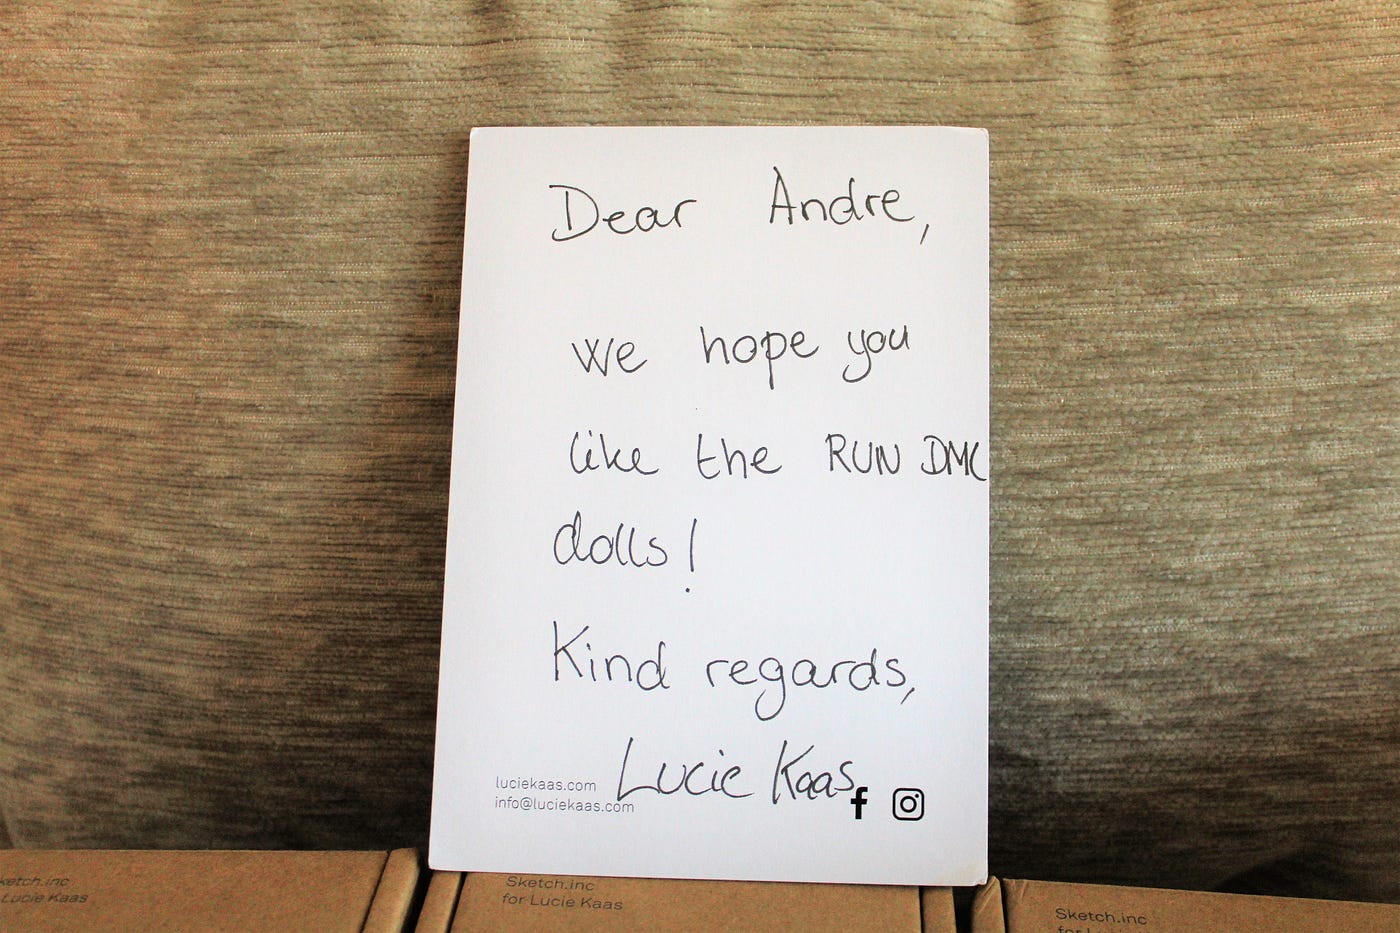 Dear Andre,
We hope you
like the RUN DMC
dolls!
Kind regards,
Lucie Kaas
luciekaas.com
info@luciekaas.com
Sketch.inc
for Lucie Kaas
Sketch.inc
for Lucie Kaas
Sketch.inc
for